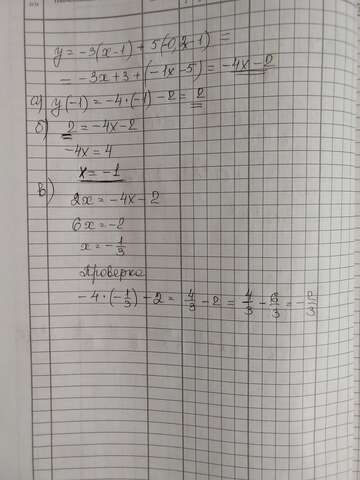 y = -3(x-1) + 5(-0,2x-1) =
= -3x+3+(-1x-5) = -4x-2
а) y(-1) = -4·(-1)-2 = 2
б) 2 = -4x-2
-4x = 4
x = -1
в)
2x = -4x-2
6x = -2
x = -1/3
Проверка
-4·(-1/3)-2 = 4/3-2 = 4/3-6/3 = -2/3